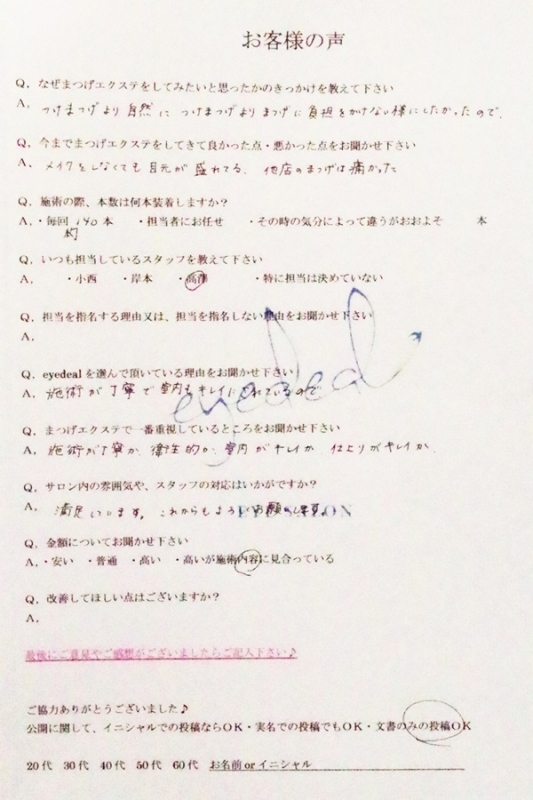 お客様の声
Q, なぜまつげエクステをしてみたいと思ったかのきっかけを教えて下さい
A, つけまつげより自然に つけまつげよりまつげに負担をかけない様にしたかったので.
Q, 今までまつげエクステをしてきて良かった点・悪かった点をお聞かせ下さい
A, メイクをしなくても目元が盛れてる. 他店のまつげは痛かった
Q, 施術の際、本数は何本装着しますか?
A, ・毎回 140 本 ・担当者にお任せ ・その時の気分によって違うがおおよそ 本
Q, いつも担当しているスタッフを教えて下さい
A, ・小西 ・岸本 ・高澤 ・特に担当は決めていない
Q, 担当を指名する理由又は、担当を指名しない理由をお聞かせ下さい
A,
Q, eyedealを選んで頂いている理由をお聞かせ下さい
A, 施術が丁寧で室内もキレイにされているので
eyedeal
Q, まつげエクステで一番重視しているところをお聞かせ下さい
A, 施術が丁寧か、衛生的か、室内がキレイか 仕上りがキレイか.
Q, サロン内の雰囲気や、スタッフの対応はいかがですか?
A, 満足しています。これからもよろしくお願いします。
Q, 金額についてお聞かせ下さい
A, ・安い ・普通 ・高い ・高いが施術内容に見合っている
Q, 改善してほしい点はございますか?
A,
最後にご意見やご感想がございましたらご記入下さい♪
ご協力ありがとうございました♪
公開に関して、イニシャルでの投稿ならOK・実名での投稿でもOK・文書のみの投稿OK
20代 30代 40代 50代 60代 お名前orイニシャル